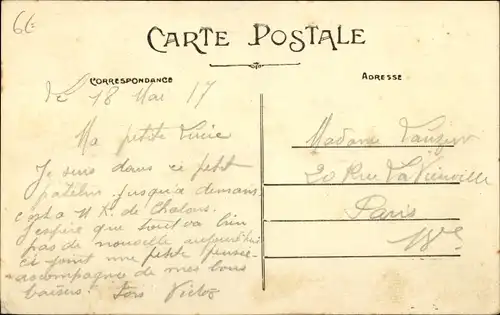 66
CARTE POSTALE
CORRESPONDANCE
ADRESSE
le 18 Mai 17
Ma petite Lucie
Je suis dans ce petit
patelin jusqu'a demain
c'est a 11 K. de Chalons.
J'espère que tout va bien
pas de nouvelle aujourd'hui
ci joint une petite pensée
accompagnée de mes bons
baisers! Victor
Madame
20 Rue La Vieuville
Paris
18e